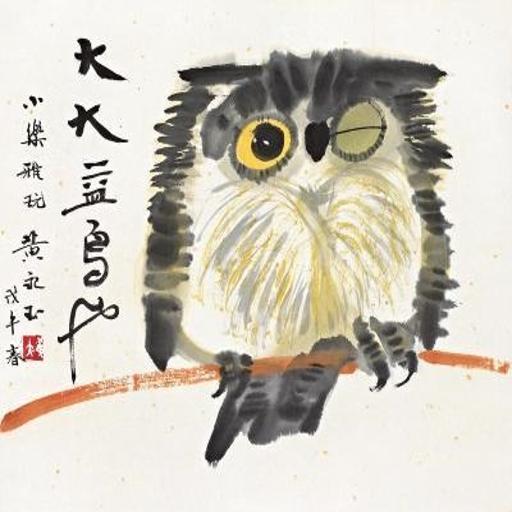 大大益鳥也
小樂雅玩 黃永玉
戊午春